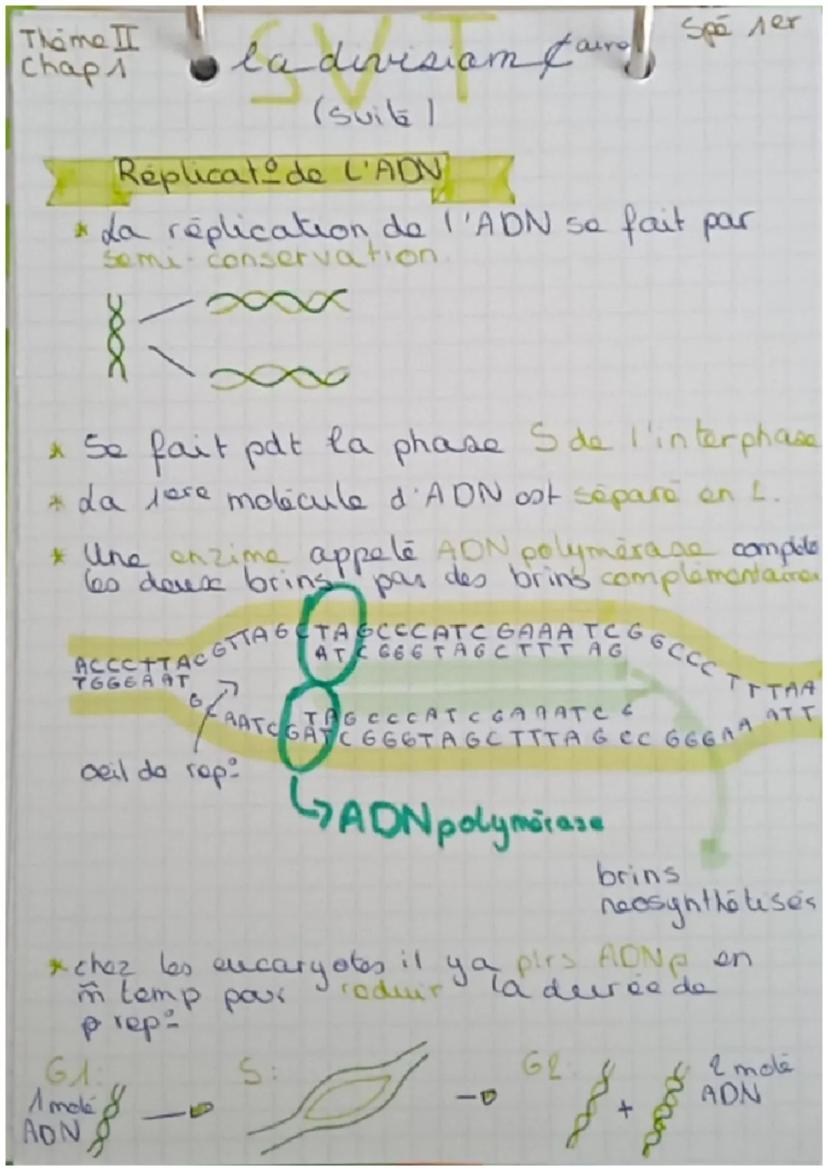 Thème II
Chap 1
SVT
Spé 1er
la division ¢aire
(suite)
Réplicat° de L'ADN
* La réplication de l'ADN se fait par
semi-conservation.
* Se fait pdt la phase S de l'interphase
* La 1ere molécule d'ADN est séparé en 2.
* Une enzime appelé ADN polymérase complète
les deux brins par des brins complémentaires
ACCCTTACGTTAGCTAGCCCATCGAAATCGGCCCTTTAA
ATCGGGTAGCTTTAG
TGGGAAT
TAGCCCATCGAAATCG
GCAATCGATCGGGTAGCTTTAGCCGGGAAATT
oeil de rep°
↳ADN polymérase
brins
neosynthétisés
* chez les eucaryotes il y a plrs ADNp en
m̂ temp pour reduir la durée de
p rep°
G1:
S:
G2:
1 molé
ADN
+
2 molé
ADN